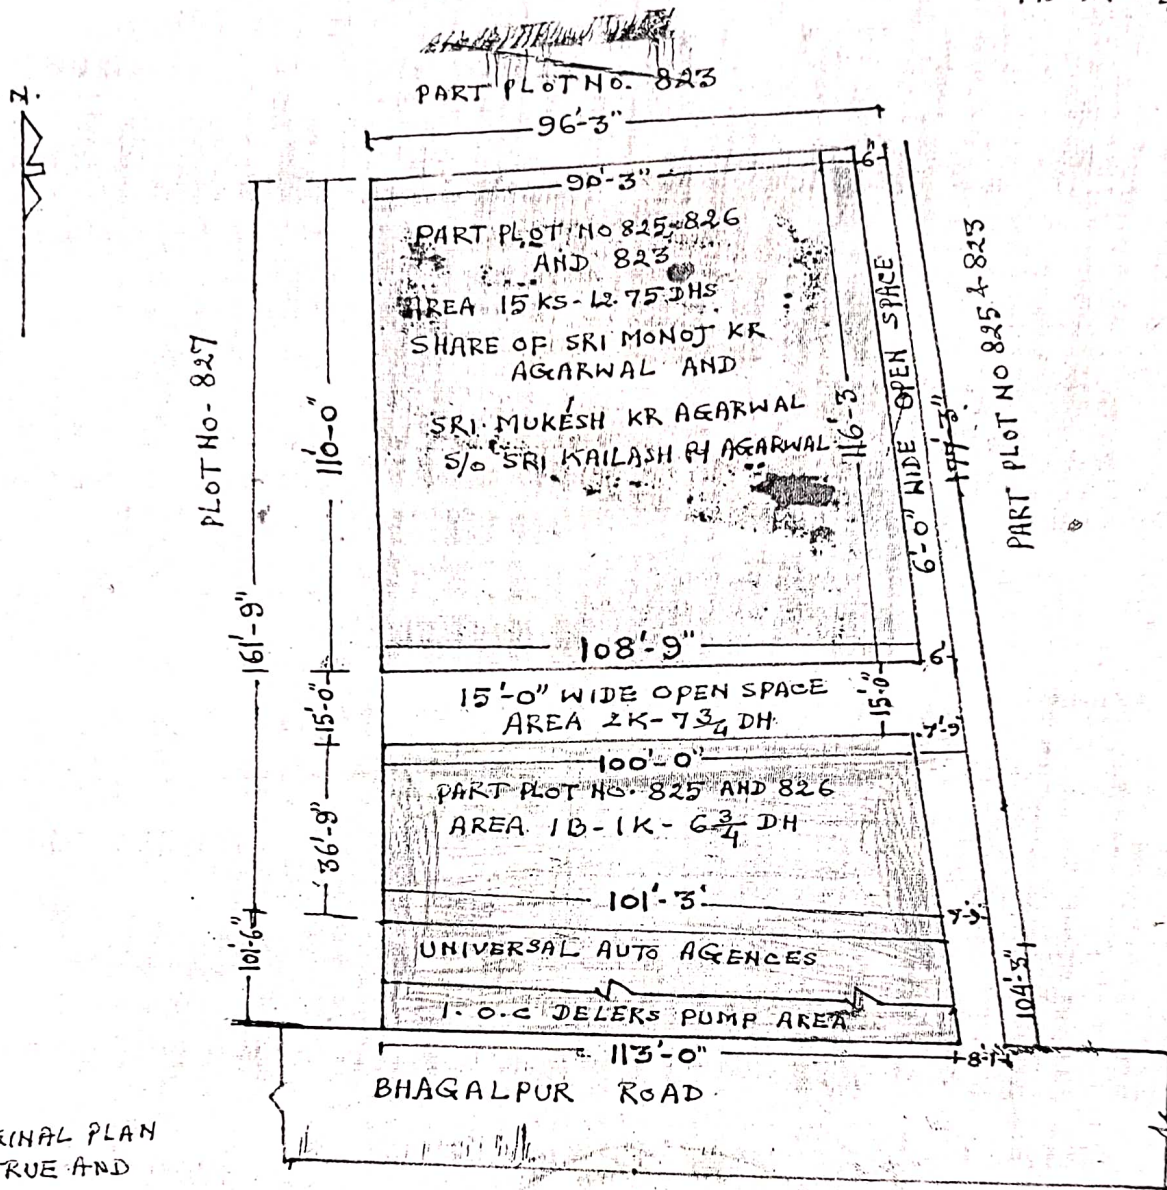 N.
PART PLOT NO. 823
96'-3"
90'-3"
6"
PART PLOT NO 825-826
AND 823
AREA 15 KS-12.75 DHS
SHARE OF SRI MONOJ KR
AGARWAL AND
SRI. MUKESH KR AGARWAL
S/o SRI KAILASH AGARWAL
PLOT NO- 827
161'-9"
110'-0"
116'-3
6'-0" WIDE OPEN SPACE
177'-3"
PART PLOT NO 825 & 823
108'-9"
6'
15'-0" WIDE OPEN SPACE
AREA 2K-7 3/4 DH
15'-0"
15'-0"
7'-9"
100'-0"
PART PLOT NO. 825 AND 826
AREA 1B-1K-6 3/4 DH
36'-9"
101'-3'
7'-9"
101'-6"
UNIVERSAL AUTO AGENCES
I.O.C DELERS PUMP AREA
104'-3"
113'-0"
8'-1"
BHAGALPUR ROAD
PLAN
TRUE AND